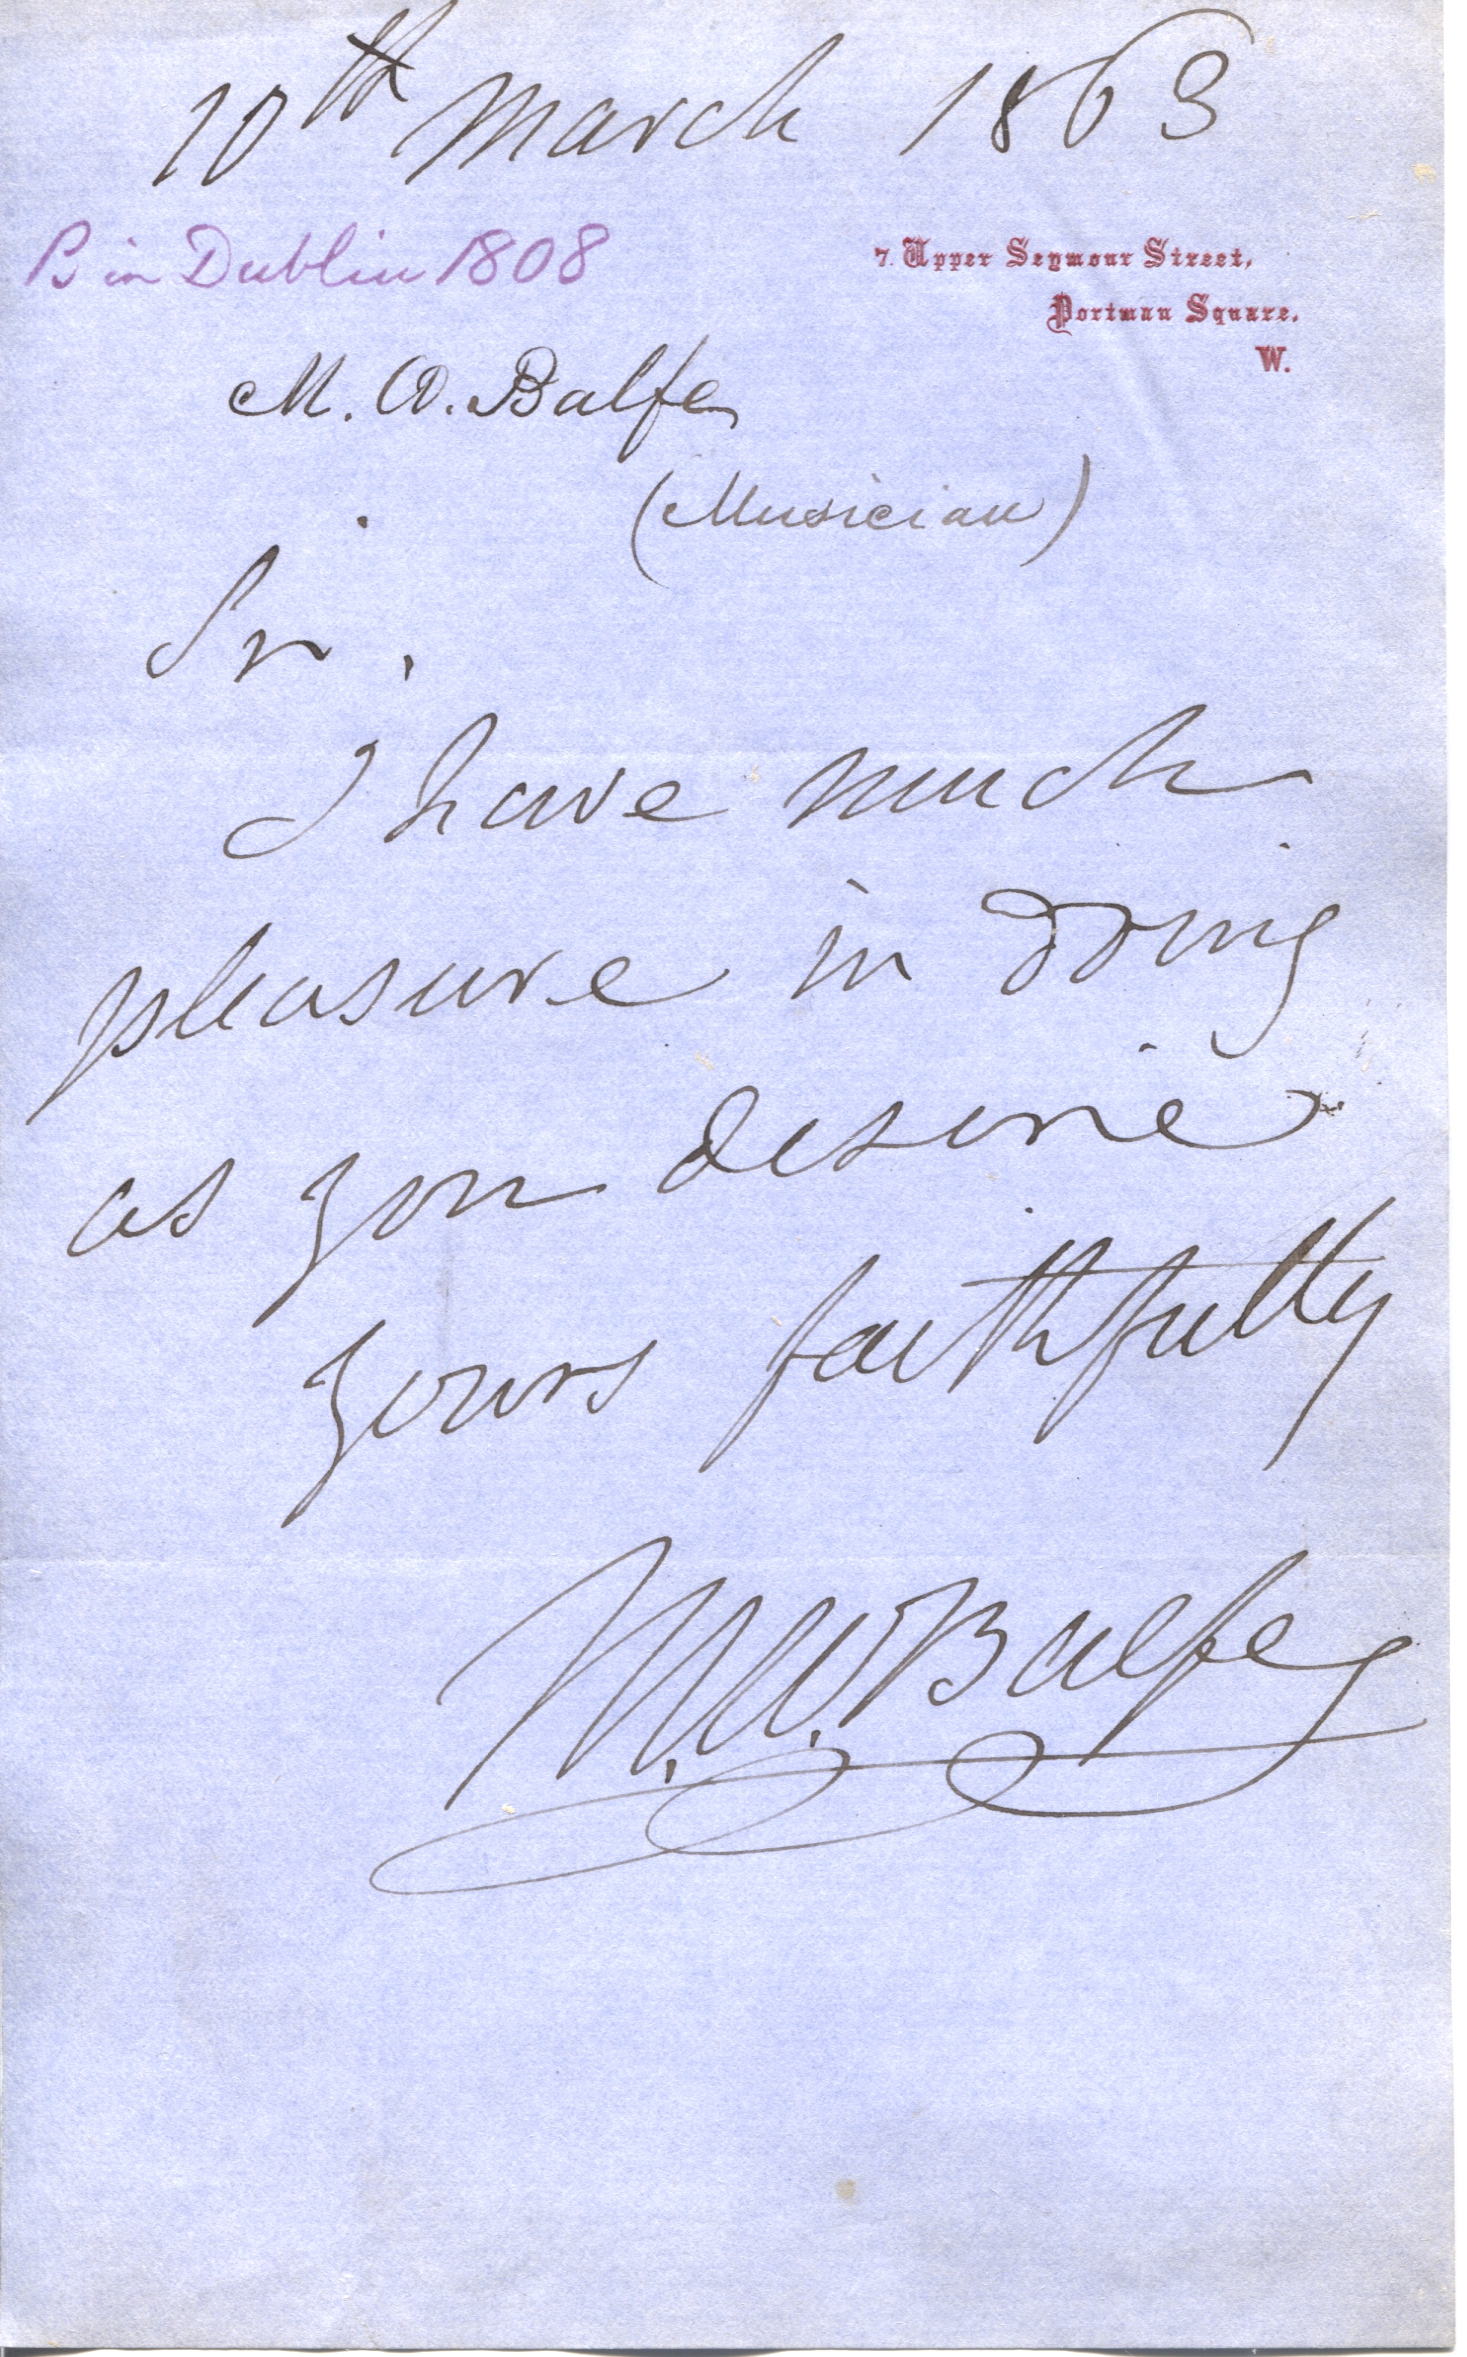 10th March 1863
B in Dublin 1808
7. Upper Seymour Street,
Portman Square.
W.
M. W. Balfe
(Musician)
Sir,
I have much
pleasure in doing
as you desire
yours faithfully
M. W. Balfe